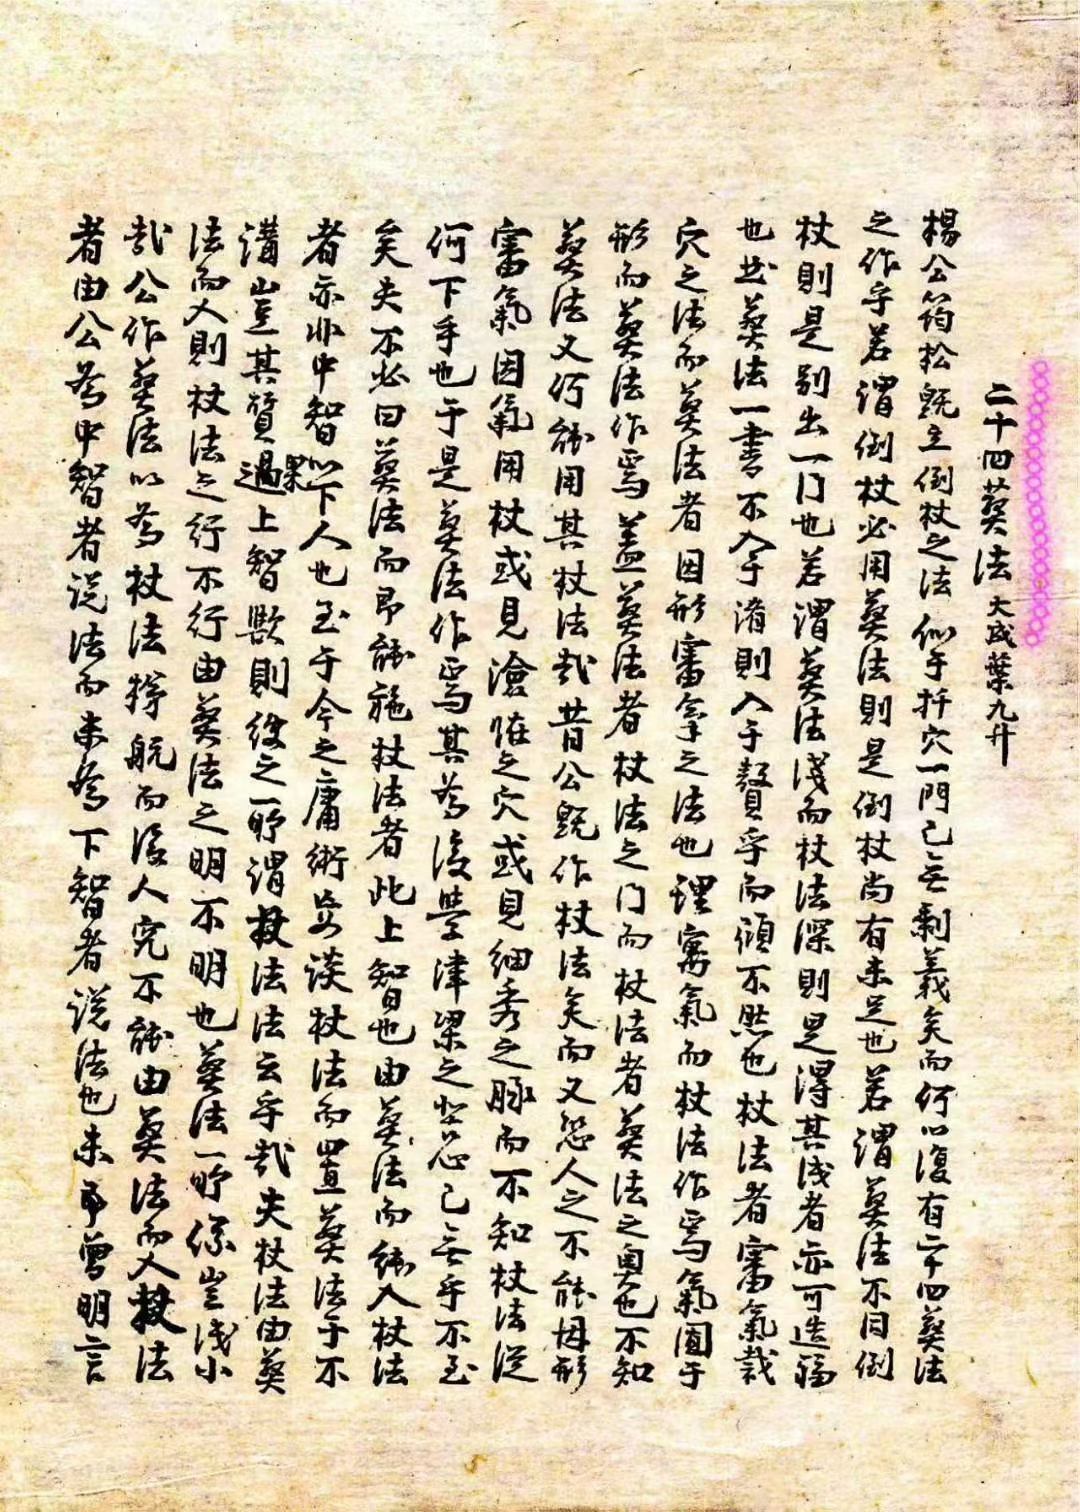 二十四葬法 大成葉九升
楊公筠松既立倒杖之法似于扦穴一門已无剩義矣而何以復有二十四葬法
之作乎若謂倒杖必用葬法則是倒杖尚有未足也若謂葬法不同倒
杖則是别出一门也若謂葬法淺而杖法深則是得其淺者亦可造福
也此葬法一書不入于淆則入于贅乎而傾不然也杖法者審氣裁
穴之法而葬法者因形審氣之法也理寓氣而杖法作焉氣囿于
形而葬法作焉盖葬法者杖法之门而杖法者葬法之奥也不知
葬法又何能用其杖法哉昔公既作杖法矣而又恐人之不能因形
審氣因氣用杖或見滄茫之穴或見細秀之脉而不知杖法從
何下手也于是葬法作焉其為後學津梁之苦心已无乎不至
矣夫不必曰葬法而即能施杖法者此上智也由葬法而能入杖法
者亦非中智以下人也至于今之庸術妄谈杖法而置葬法于不
講豈其質果過上智歟則彼之所謂杖法法云乎哉夫杖法由葬
法而入則杖法之行不行由葬法之明不明也葬法所係豈淺小
哉公作葬法以為杖法梯航而後人究不能由葬法而入杖法
者由公為中智者说法而未為下智者说法也未曾明言